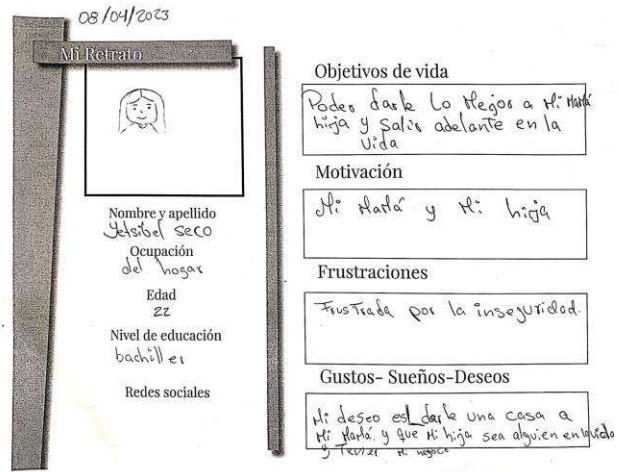 08/04/2023
Mi Retrato
Nombre y apellido
Yetsibel seco
Ocupación
del hogar
Edad
22
Nivel de educación
bachiller
Redes sociales
Objetivos de vida
Poder darle Lo Mejor a Mi Mamá
hija y Salir adelante en la
Vida
Motivación
Mi Mamá y Mi hija
Frustraciones
Frustrada por la inseguridad.
Gustos- Sueños-Deseos
Mi deseo es darle una casa a
Mi Mamá. y que Mi hija sea alguien en la vida
y Tener Mi negocio